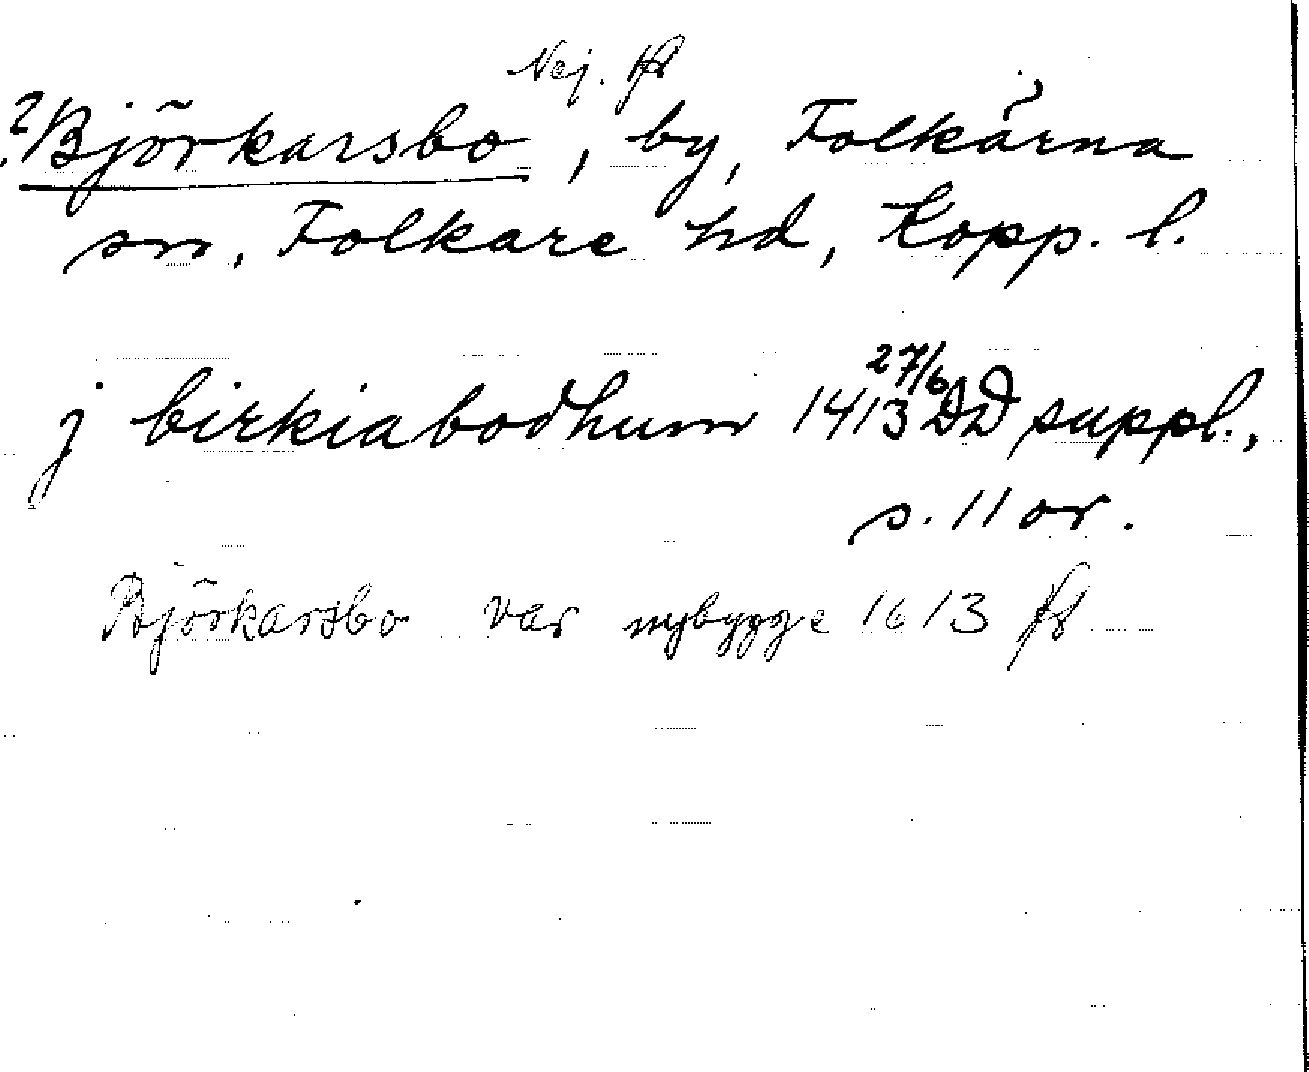 Nej.
?Björkarsbo, by, Folkärna
sn, Folkare hd, Kopp. l.
j birkiabodhum 1413 27/6 DD suppl.,
s. 11 or.
Björkarsbo var nybygge 1613